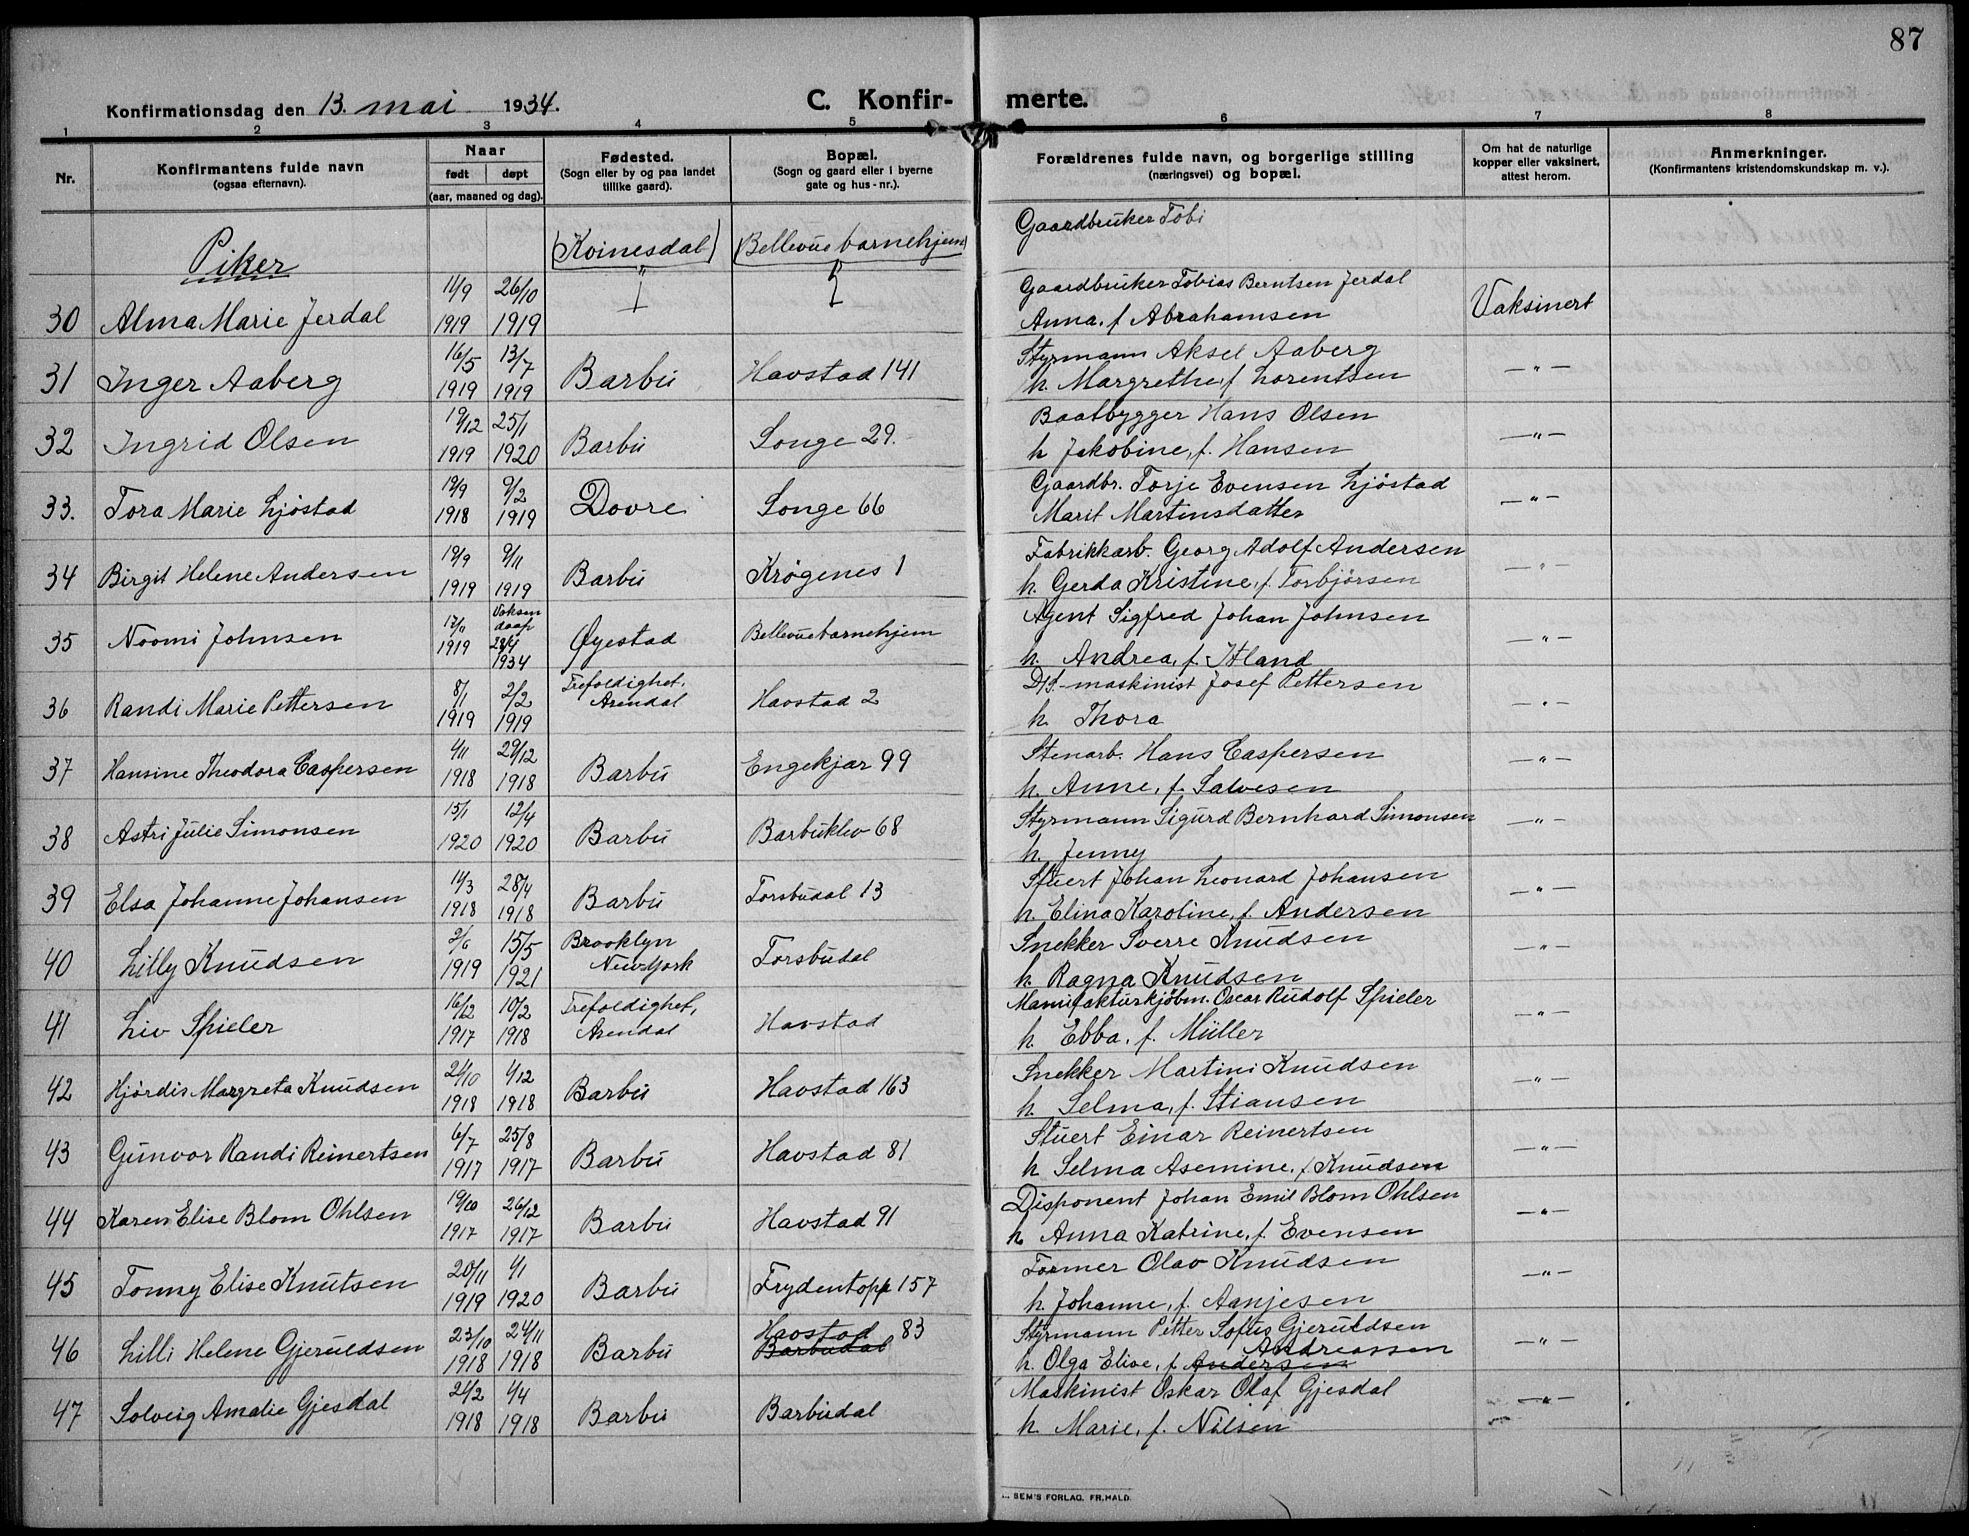 87
Konfirmationsdag den 13. mai 1934.
C. Konfir- merte.
1 2 3 4 5 6 7 8
Nr.
Konfirmantens fulde navn
(ogsaa efternavn).
Naar
født døpt
(aar, maaned og dag).
Fødested.
(Sogn eller by og paa landet
tillike gaard).
Bopæl.
(Sogn og gaard eller i byerne
gate og hus-nr.).
Forældrenes fulde navn, og borgerlige stilling
(næringsvei) og bopæl.
Om hat de naturlige
kopper eller vaksinert,
attest herom.
Anmerkninger.
(Konfirmantens kristendomskundskap m. v.).
Piker
(Kvinesdal) (Bellevue barnehjem)
Gaardbruker Tobi
11/9 26/10 " Gaardbruker Tobias Berntsen Jerdal
30 Alma Marie Jerdal 1919 1919 Anna, f Abrahamsen Vaksinert
16/5 13/7 Styrmann Aksel Aaberg
31 Inger Aaberg 1919 1919 Barbu Havstad 141 h. Margrethe, f Lorentsen —"—
19/12 25/1 Baatbygger Hans Olsen
32 Ingrid Olsen 1919 1920 Barbu Songe 29. h Jakobine, f. Hansen —"—
19/9 9/2 Gaardbr. Torje Evensen Ljøstad
33. Tora Marie Ljøstad 1918 1919 Dovre Songe 66 Marit Martensdatter —"—
19/9 9/11 Fabrikkarb. Georg Adolf Andersen
34 Birgit Helene Andersen 1919 1919 Barbu Krøgenes 1 h. Gerda Kristine, f. Torbjørsen —"—
Voksen
daap
Agent Sigfred Johan Johnsen
35 Noomi Johnsen 1919 28/4 1934 Øyestad Bellevue barnehjem h. Andrea, f. —"—
8/1 2/2 Trefoldighet, D/S.-maskinist Josef Pettersen
36 Randi Marie Pettersen 1919 1919 Arendal Havstad 2 h. Thora —"—
4/11 29/12 Stenarb. Hans Caspersen
37 Hansine Theodora Caspersen 1918 1918 Barbu Engekjær 99 h. Anne, f. Salvesen —"—
15/1 12/4 Styrmann Sigurd Bernhard Simonsen
38 Astri Julie Simonsen 1920 1920 Barbu Barbuklev 68 h. Jenny —"—
11/3 28/4 Stuert Johan Leonard Johansen
39 Elsa Johanne Johansen 1918 1918 Barbu Torsbudal 13 h. Elina Karoline, f. Andersen —"—
2/6 15/5 Brooklyn Snekker Sverre Knudsen
40 Lilly Knudsen 1919 1921 New York Torsbudal h. Ragna Knudsen —"—
16/12 10/2 Trefoldighet, Manufakturkjøbm. Oscar Rudolf Spieler
41 Liv Spieler 1917 1918 Arendal Havstad h. Ebba, f. Müller —"—
21/10 1/12 Snekker Martini Knudsen
42 Hjørdis Margreta Knudsen 1918 1918 Barbu Havstad 163 h. Selma, f. Stiansen —"—
6/7 25/8 Stuert Einar Reinertsen
43 Gunvor Randi Reinertsen 1917 1917 Barbu Havstad 81 h Selma Asemine, f Knudsen —"—
19/10 26/12 Disponent Johan Emil Blom Ohlsen
44 Karen Elise Blom Ohlsen 1917 1917 Barbu Havstad 91 h Anna Katrine, f. Evensen —"—
20/11 1/1 Former Olav Knudsen
45 Tonny Elise Knutsen 1919 1920 Barbu Frydentopp 157 h. Johanne, f. Aanjesen —"—
23/10 24/11 Havstad 83 Styrmann Petter Sofus Gjeruldsen
46 Lilli Helene Gjeruldsen 1918 1918 Barbu Barbudal h. Olga Elise, f. Andersen Andreassen —"—
21/2 1/4 Maskinist Oskar Olaf Gjesdal
47 Solveig Amalie Gjesdal 1918 1918 Barbu Barbudal h. Marie, f. Nilsen —"—
SEM'S FORLAG. FR.HALD.